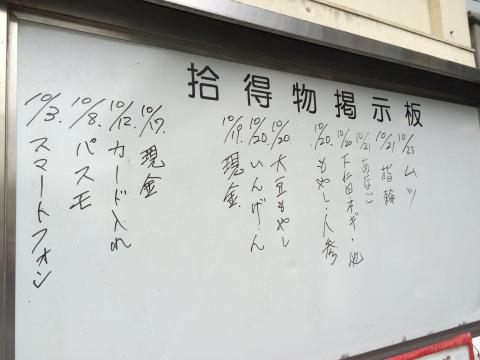 拾得物掲示板
10/23 ムツ
10/21 指輪
10/21 あなご
10/20 下仁田ネギ・他
10/20 もやし・人参
10/20 大豆もやし
10/20 いんげん
10/19 現金
10/17 現金
10/12 カード入れ
10/8 パスモ
10/3 スマートフォン